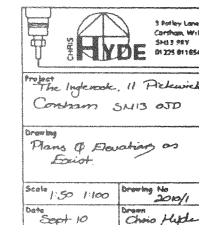 CHRIS
HYDE
3 Potley Lane
Corsham, Wil
SN13 9RY
01225 811854
Project
The Inglenook, 11 Pickwick
Corsham SN13 0JD
Drawing
Plans & Elevations as
Exist
Scale 1:50 1:100
Drawing No 2010/1
Date Sept 10
Drawn Chris Hyde